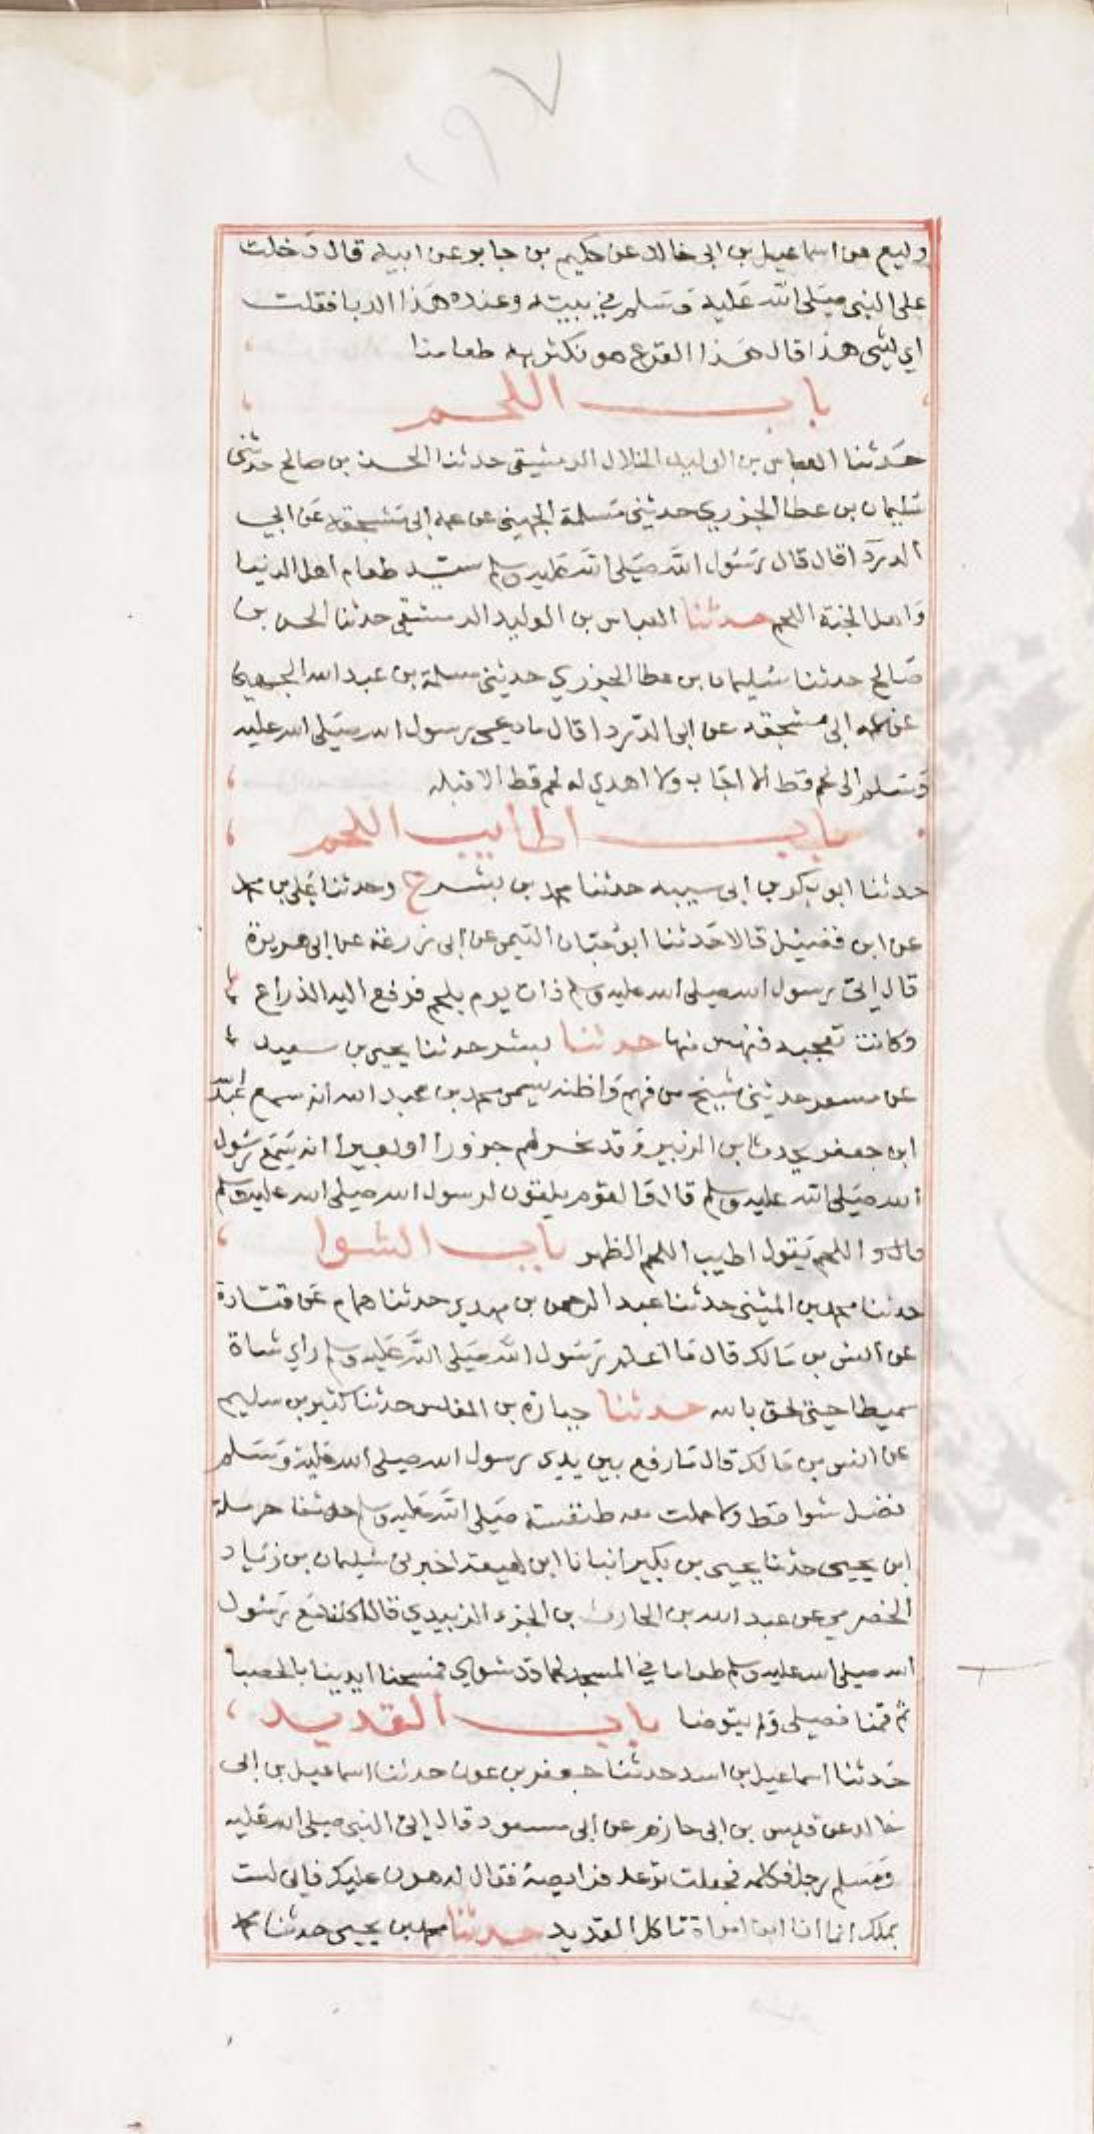 وكيع عن اسماعيل بن ابي خالد عن حكيم بن جابر عن ابيه قال دخلت
على النبي صلى الله عليه وسلم في بيته وعنده هذا الدبا فقلت
اي شي هذا قال هذا القرع هو نكثر به طعامنا
باب اللحم
حدثنا العباس بن الوليد الخلال الدمشقي حدثنا الحسن بن صالح حدثني
سليمان بن عطا الجزري حدثني مسلمة الجهني عن عمه ابي مشجعة عن ابي
الدردا قال قال رسول الله صلى الله عليه وسلم سيد طعام اهل الدنيا
واهل الجنة اللحم حدثنا العباس بن الوليد الدمشقي حدثنا الحسن بن
صالح حدثنا سليمان بن عطا الجزري حدثني مسلمة بن عبد الله الجهني
عن عمه ابي مشجعة عن ابي الدردا قال ما دعي رسول الله صلى الله عليه
وسلم الى لحم قط الا اجاب ولا اهدي له لحم قط الا قبله
باب اطايب اللحم
حدثنا ابو بكر بن ابي شيبه حدثنا محمد بن بشر ح وحدثنا علي بن محمد
عن ابن فضيل قالا حدثنا ابو حيان التيمي عن ابي زرعة عن ابي هريرة
قال اتي رسول الله صلى الله عليه وسلم ذات يوم بلحم فرفع اليه الذراع
وكانت تعجبه فنهس منها حدثنا بشر حدثنا يحيى بن سعيد
عن مسعر حدثني شيخ من فهم واظنه يسمى محمد بن عبد الله انه سمع عبد الله
ابن جعفر يحدث ابن الزبير وقد نحر لهم جزورا او بعيرا انه سمع رسول
الله صلى الله عليه وسلم قال والقوم يلقون لرسول الله صلى الله عليه وسلم
قال و اللحم يقول اطيب اللحم الظهر باب الشوا
حدثنا محمد بن المثنى حدثنا عبد الرحمن بن مهدي حدثنا همام عن قتادة
عن انس بن مالك قال ما اعلم رسول الله صلى الله عليه وسلم راي شاة
سميطا حتى لحق بالله حدثنا جبارة بن المغلس حدثنا كثير بن سليم
عن انس بن مالك قال ما رفع بين يدي رسول الله صلى الله عليه وسلم
فضل شوا قط ولا حملت معه طنفسة صلى الله عليه وسلم حدثنا حرملة
ابن يحيى حدثنا يحيى بن بكير انبانا ابن لهيعة اخبرني سليمان بن زياد
الحضرمي عن عبد الله بن الحارث بن الجزء الزبيدي قال اكلنا مع رسول
الله صلى الله عليه وسلم طعاما في المسجد لحما قد شوي فمسحنا ايدينا بالحصبا
ثم قمنا فصلى ولم يتوضا باب القديد
حدثنا اسماعيل بن اسد حدثنا جعفر بن عون حدثنا اسماعيل بن ابي
خالد عن قيس بن ابي حازم عن ابي مسعود قال اتى النبي صلى الله عليه
وسلم رجل فكلمه فجعلت ترعد فرايصه فقال له هون عليك فاني لست
بملك انما انا ابن امراة تاكل القديد حدثنا محمد بن يحيى حدثنا محمد